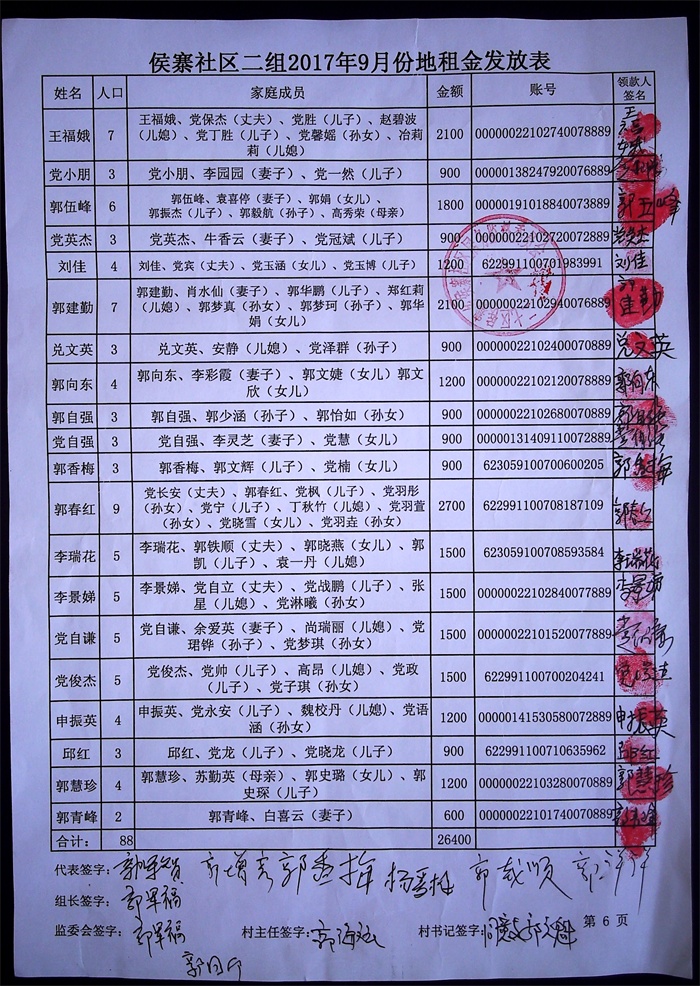 侯寨社区二组2017年9月份地租金发放表
姓名 人口 家庭成员 金额 账号 领款人
签名
王福娥 7 王福娥、党保杰（丈夫）、党胜（儿子）、赵碧波
（儿媳）、党丁胜（儿子）、党馨嫕（孙女）、冶莉
莉（儿媳） 2100 00000022102740078889
党小朋 3 党小朋、李园园（妻子）、党一然（儿子） 900 00000138247920076889
郭伍峰 6 郭伍峰、袁喜停（妻子）、郭娟（女儿）、
郭振杰（儿子）、郭毅航（孙子）、高秀荣（母亲） 1800 00000191018840073889 郭五峰
党英杰 3 党英杰、牛香云（妻子）、党冠斌（儿子） 900 00000022102720072889
刘佳 4 刘佳、党宾（丈夫）、党玉涵（女儿）、党玉博（儿子） 1200 622991100701983991 刘佳
郭建勤 7 郭建勤、肖水仙（妻子）、郭华鹏（儿子）、郑红莉
（儿媳）、郭梦真（孙女）、郭梦珂（孙子）、郭华
娟（女儿） 2100 00000022102940076889 郭建勤
兑文英 3 兑文英、安静（儿媳）、党泽群（孙子） 900 00000022102400070889 兑文英
郭向东 4 郭向东、李彩霞（妻子）、郭文婕（女儿）郭文
欣（女儿） 1200 00000022102120078889 郭向东
郭自强 3 郭自强、郭少涵（孙子）、郭怡如（孙女） 900 00000022102680070889
党自强 3 党自强、李灵芝（妻子）、党慧（女儿） 900 00000131409110072889
郭香梅 3 郭香梅、郭文辉（儿子）、党楠（女儿） 900 623059100700600205 郭香梅
郭春红 9 党长安（丈夫）、郭春红、党枫（儿子）、党羽彤
（孙女）、党宁（儿子）、丁秋竹（儿媳）、党羽萱
（孙女）、党晓雪（女儿）、党羽垚（孙女） 2700 622991100708187109
李瑞花 5 李瑞花、郭铁顺（丈夫）、郭晓燕（女儿）、郭
凯（儿子）、袁一丹（儿媳） 1500 623059100708593584 李瑞花
李景娣 5 李景娣、党自立（丈夫）、党战鹏（儿子）、张
星（儿媳）、党淋曦（孙女） 1500 00000022102840077889
党自谦 5 党自谦、余爱英（妻子）、尚瑞丽（儿媳）、党
珺铧（孙子）、党梦琪（孙女） 1500 00000022101520077889
党俊杰 5 党俊杰、党帅（儿子）、高昂（儿媳）、党政
（儿子）、党子琪（孙女） 1500 622991100700204241
申振英 4 申振英、党永安（儿子）、魏校丹（儿媳）、党语
涵（孙女） 1200 00000141530580072889 申振英
邱红 3 邱红、党龙（儿子）、党晓龙（儿子） 900 622991100710635962 邱红
郭慧珍 4 郭慧珍、苏勤英（母亲）、郭史璐（女儿）、郭
史琛（儿子） 1200 00000022103280070889 郭慧珍
郭青峰 2 郭青峰、白喜云（妻子） 600 00000022101740070889
合计： 88 26400
代表签字： 郭香梅
组长签字：
监委会签字： 村主任签字： 村书记签字：
第 6 页